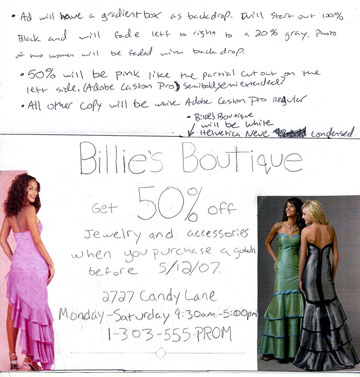 • Ad will have a gradient box as backdrop. Will start out 100%
Black and will fade left to right to a 20% gray. Photo
of two women will be faded w/in backdrop.
• 50% will be pink like the partial cut out on the
left side. (Adobe Caslon Pro) Semibold, semi extended?
• All other copy will be white Adobe Caslon Pro regular
• Billie's Boutique
will be white
Helvetica Neue condensed
Billie's Boutique
Get 50% off
Jewelry and accessories
when you purchase a gown
before 5/12/07.
2727 Candy Lane
Monday-Saturday 9:30am-5:00pm
1-303-555-PROM